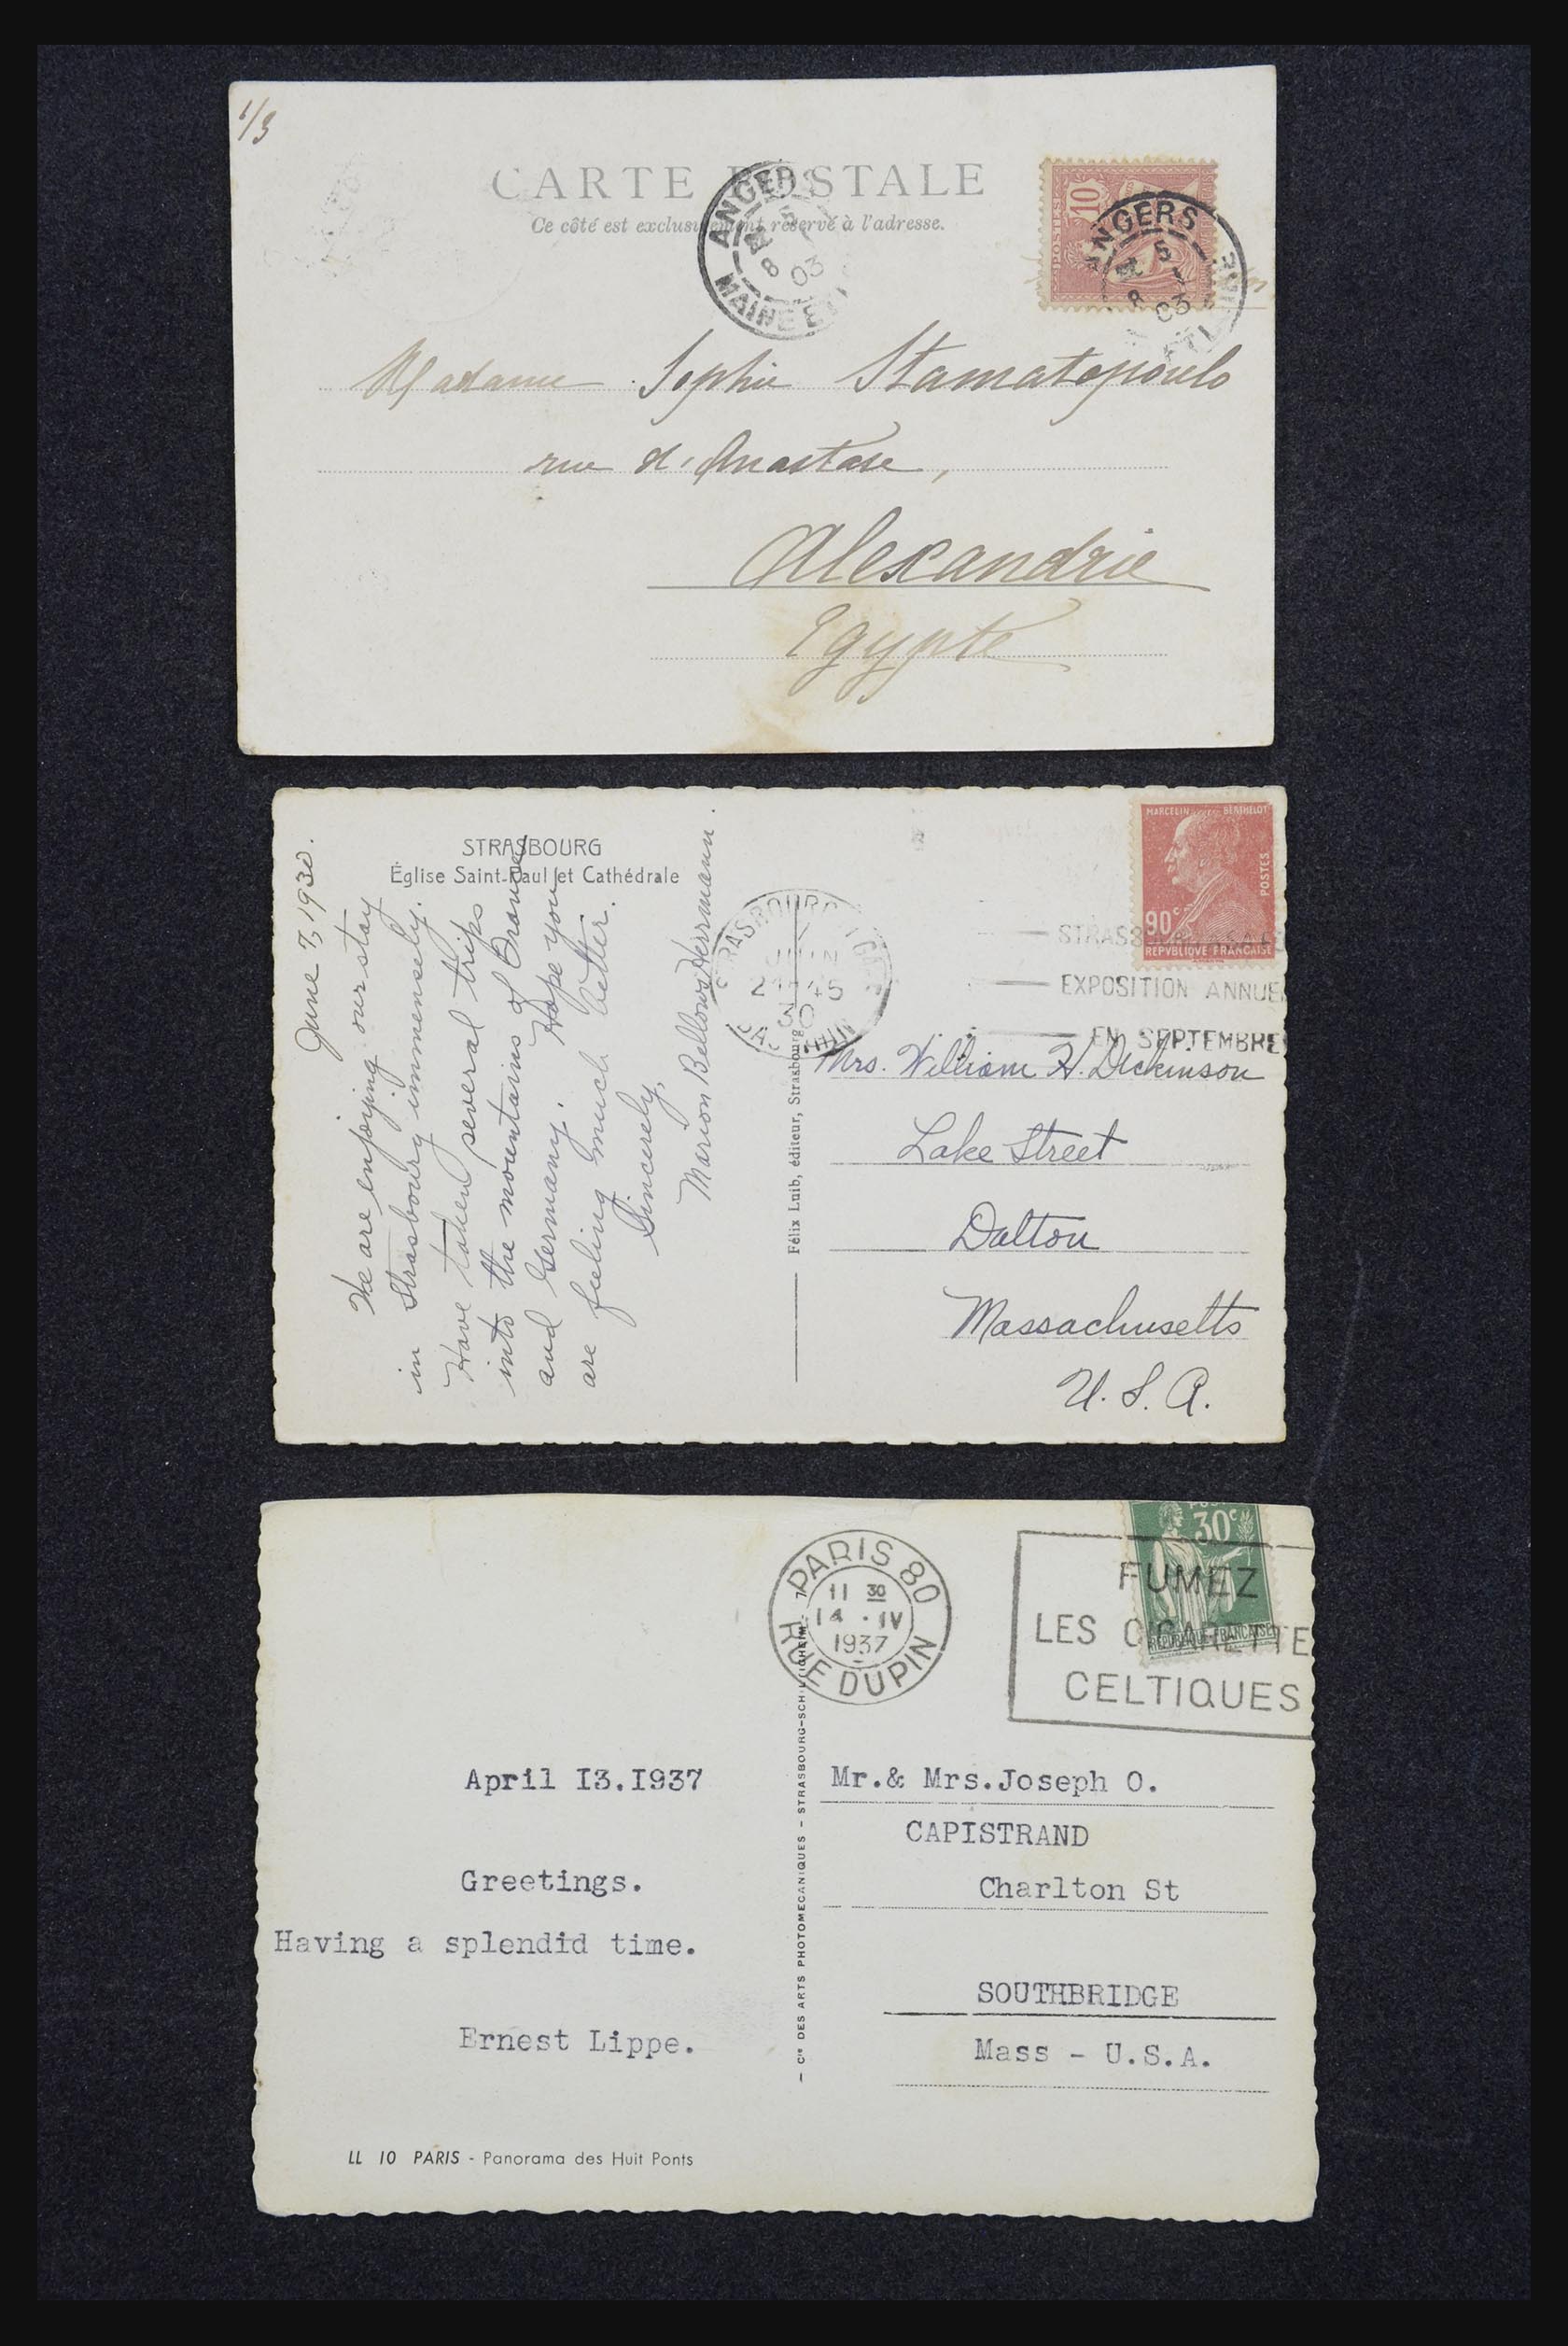 1/3
CARTE POSTALE
Ce côté est exclusivement réservé à l'adresse.
ANGERS
5
8 03
MAINE ET
POSTES
10
ANGERS
5
8 03
Madame Sophie Stamatopoulo
rue d'Anastase,
Alexandrie
Egypte
STRASBOURG
Église Saint-Paul et Cathédrale
June 7, 1930.
We are enjoying our stay
in Strasbourg immensely.
Have taken several trips
into the mountains of France
and Germany. Hope you
are feeling much better.
Sincerely,
Marion Bellows Herrmann.
Félix Luib, éditeur, Strasbourg
STRASBOURG GARE
21H45
30
BAS RHIN
MARCELIN BERTHELOT
POSTES
90c
REPVBLIQVE FRANCAISE
EXPOSITION ANNUE
EN SEPTEMBRE
Mrs. William H. Dickinson
Lake Street
Dalton
Massachusetts
U. S. A.
PARIS 80
11 30
14 . IV
1937
RUE DUPIN
30c
REPUBLIQUE FRANCAISE
FUMEZ
LES CIGARETTE
CELTIQUES
April I3.I937
Greetings.
Having a splendid time.
Ernest Lippe.
LL 10 PARIS - Panorama des Huit Ponts
– Cie DES ARTS PHOTOMECANIQUES – STRASBOURG-SCHILTIGHEIM. –
Mr.& Mrs.Joseph O.
CAPISTRAND
Charlton St
SOUTHBRIDGE
Mass - U.S.A.